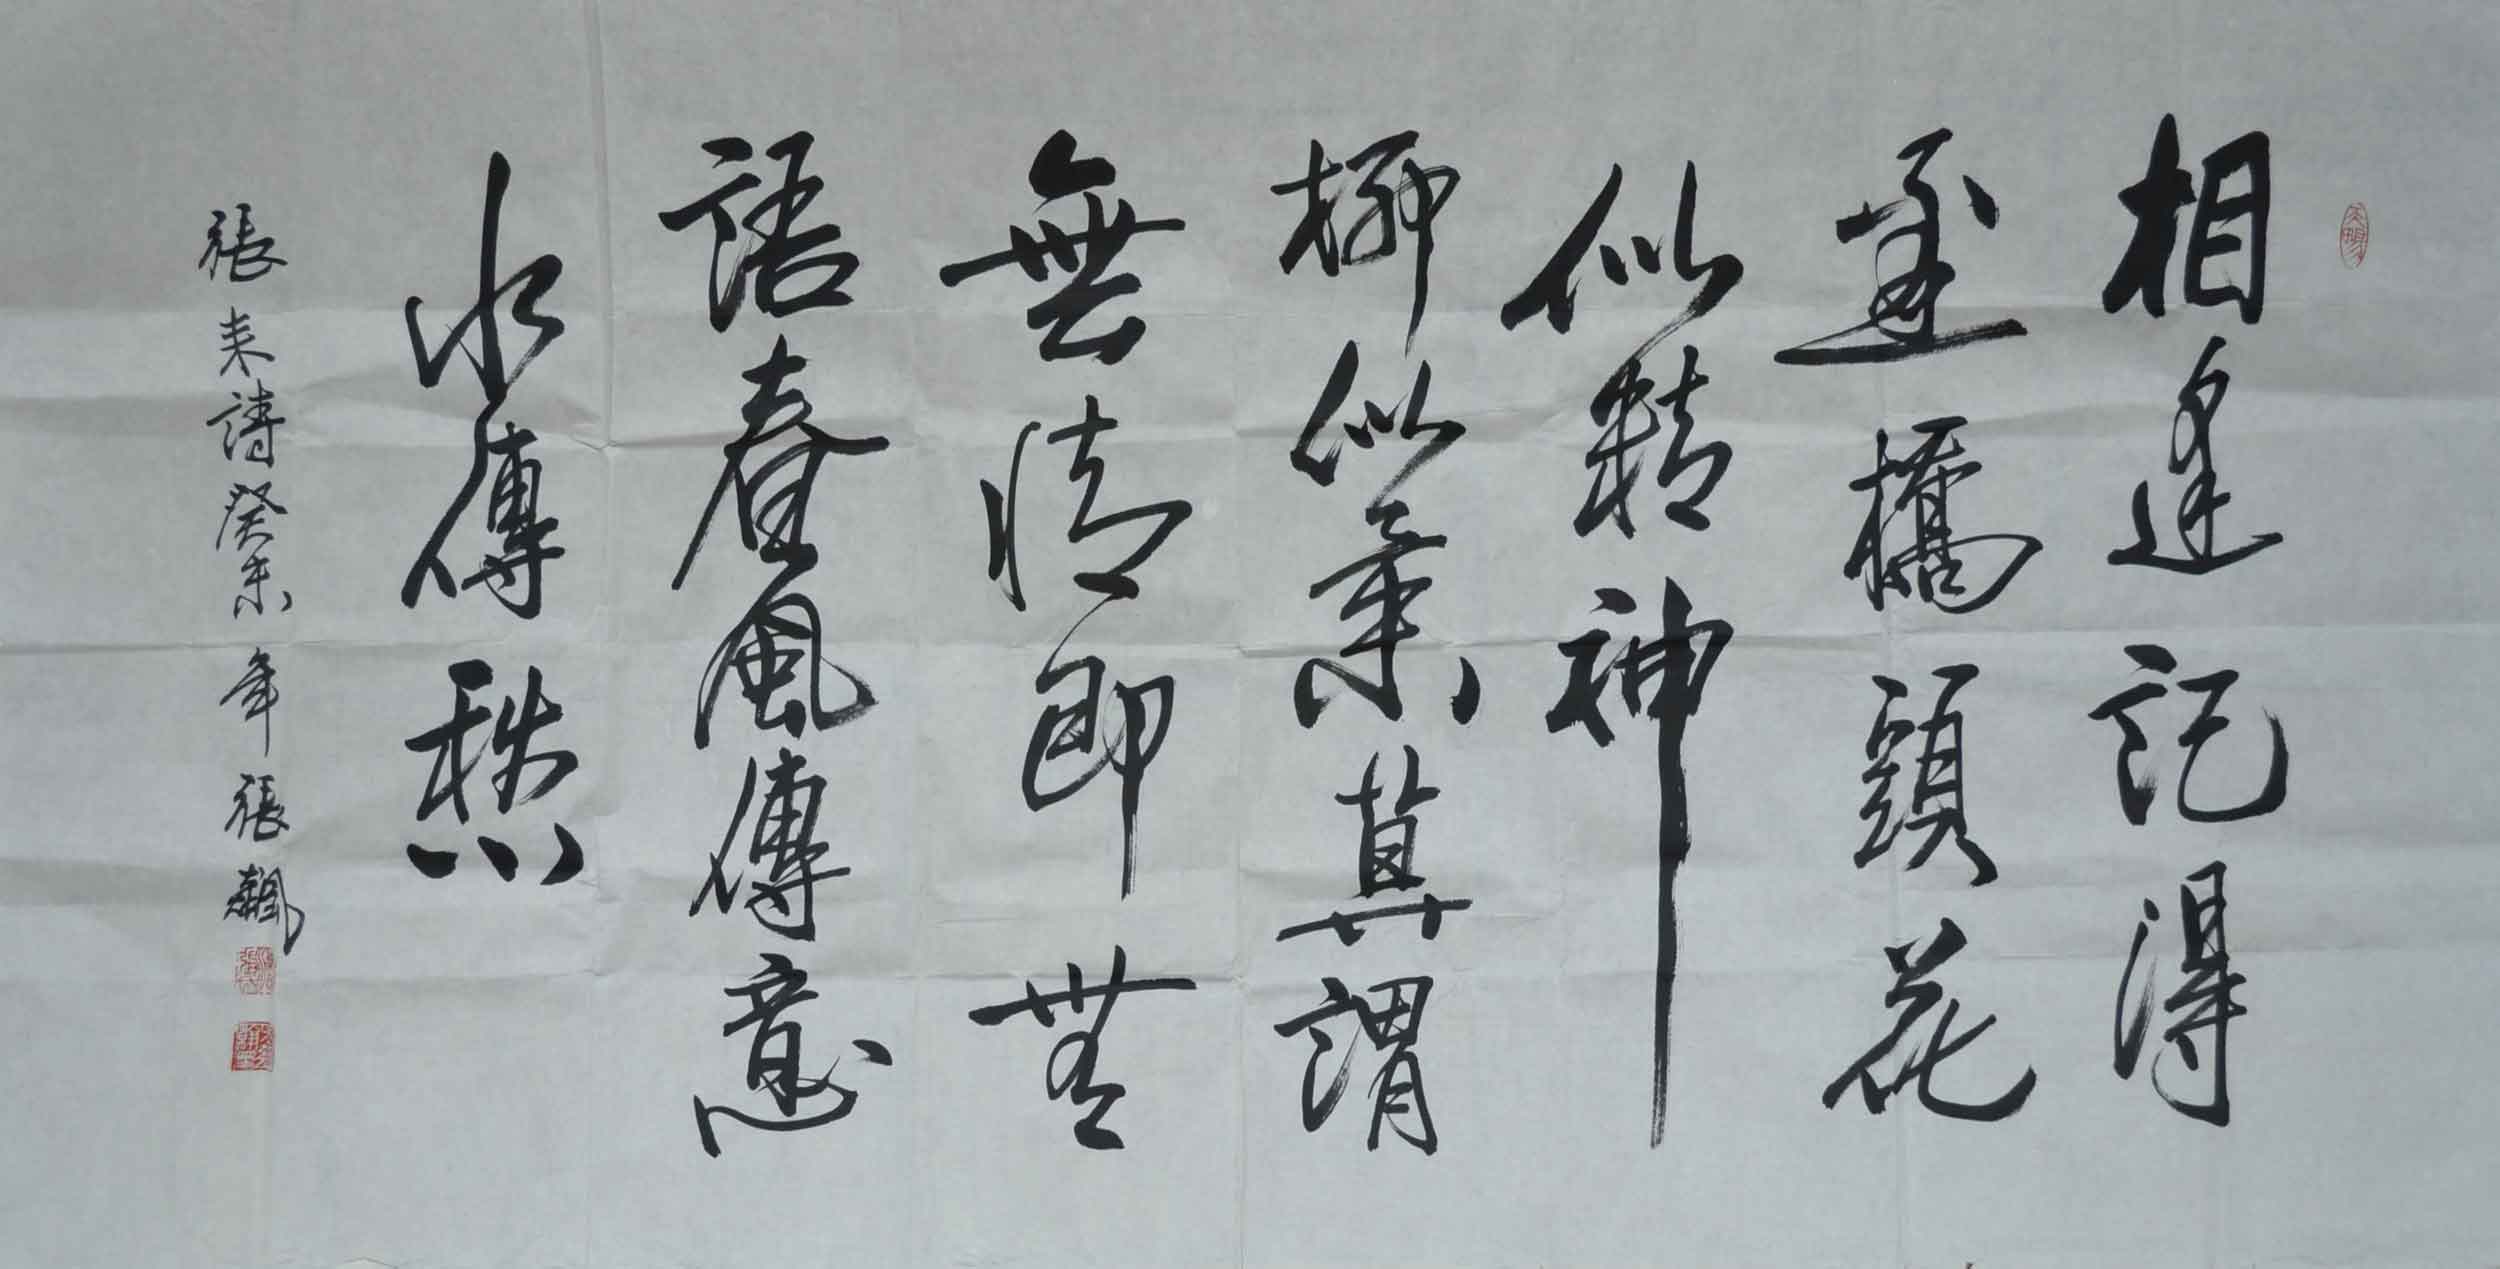 相逢記得
畫橋頭花
似精神
柳似柔莫謂
無情即無
語春風傳意
水傳愁
張耒詩癸未年張飆